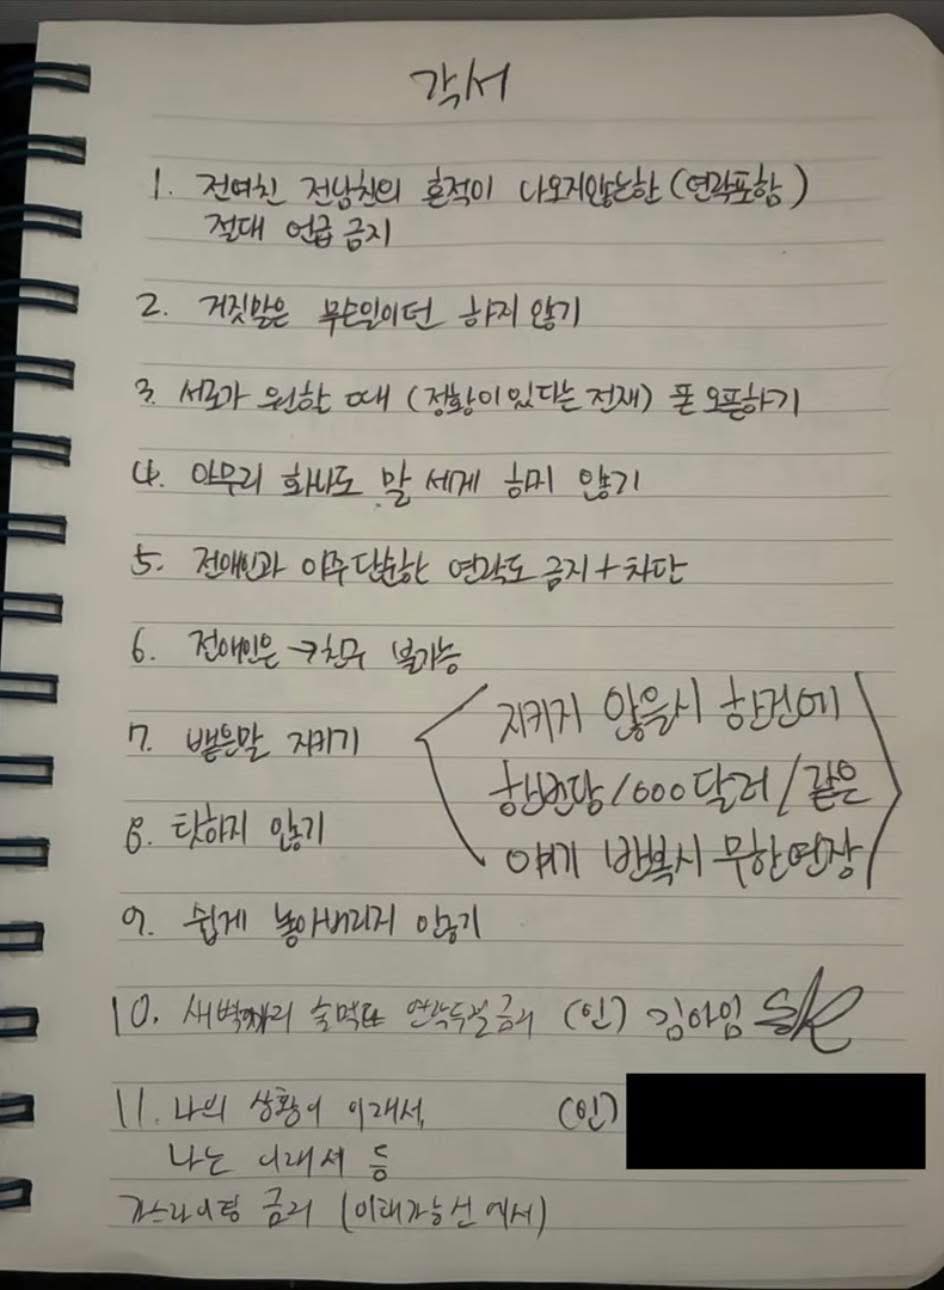 각서
1. 전여친 전남친의 흔적이 나오지않는한 (연락포함)
절대 언급 금지
2. 거짓말은 무슨일이던 하지 않기
3. 서로가 원할 때 (정황이 있다는 전재) 폰 오픈하기
4. 아무리 화나도 말 세게 하지 않기
5. 전애인과 아주단순한 연락도 금지+차단
6. 전애인은 → 친구 불가능
7. 뱉은말 지키기
8. 탓하지 않기
지키지 않을시 한건에
한번당/600달러/같은
얘기 반복시 무한연장
9. 쉽게 놓아버리지 않기
10. 새벽까지 술먹고 연락두절금지 (인) 김아임
11. 나의 상황이 이래서, (인)
나는 이래서 등
가스라이팅 금지 (이해가능선에서)